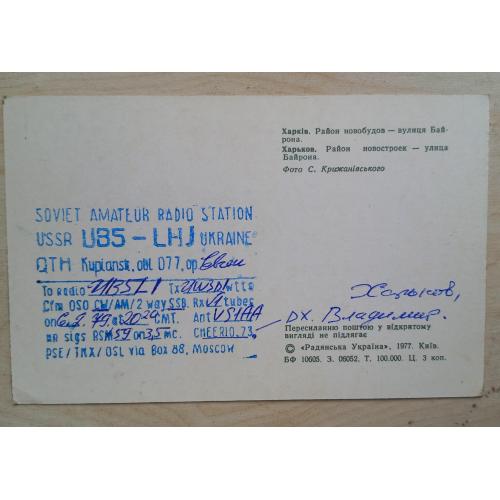 Харків. Район новобудов — вулиця Бай-
рона.
Харьков. Район новостроек — улица
Байрона.
Фото С. Крижанівського
SOVIET AMATEUR RADIO STATION
USSR UB5-LHJ UKRAINE
QTH Kupiansk, obl. 077, op
To radio Tx wtts
Cfm QSO CW/AM/2 way SSB. Rx tubes
on 79 at 2020 GMT. Ant VS1AA
ur sigs RSM 59 on 3,5 mc. CHEERIO, 73,
PSE/TNX/QSL via Box 88, Moscow
Харьков,
DX. Владимир.
Пересиланню поштою у відкритому
вигляді не підлягає
© «Радянська Україна», 1977. Київ.
БФ 10605. З. 06052. Т. 100.000. Ц. 3 коп.